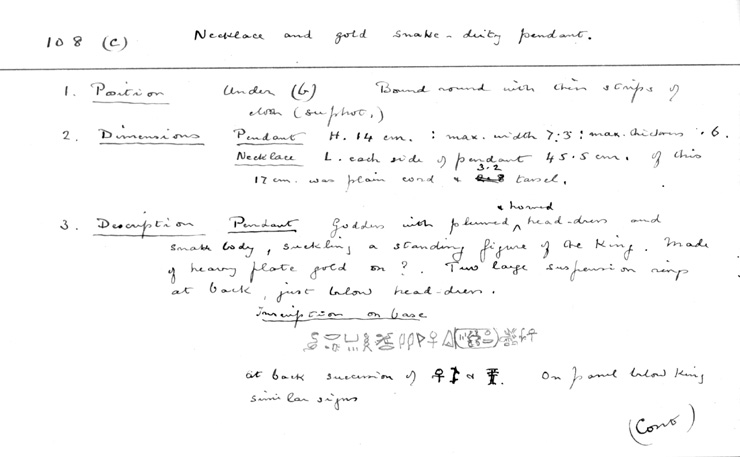 108 (c) Necklace and gold snake-deity pendant.
1. Position Under (b) Bound round with thin strips of
cloth (see phot.)
2. Dimensions Pendant H. 14 cm. : max. width 7.3 : max. thickness .6.
Necklace L. each side of pendant 45.5 cm. Of this
3.2
12 cm. was plain cord & tassel.
& horned
3. Description Pendant Goddess with plumed ^ head-dress and
snake body, suckling a standing figure of the King. Made
of heavy plate gold on ? . Two large suspension rings
at back, just below head-dress.
Inscription on base
at back succession of 𓋹 & . On panel below King
similar signs
(Cont)